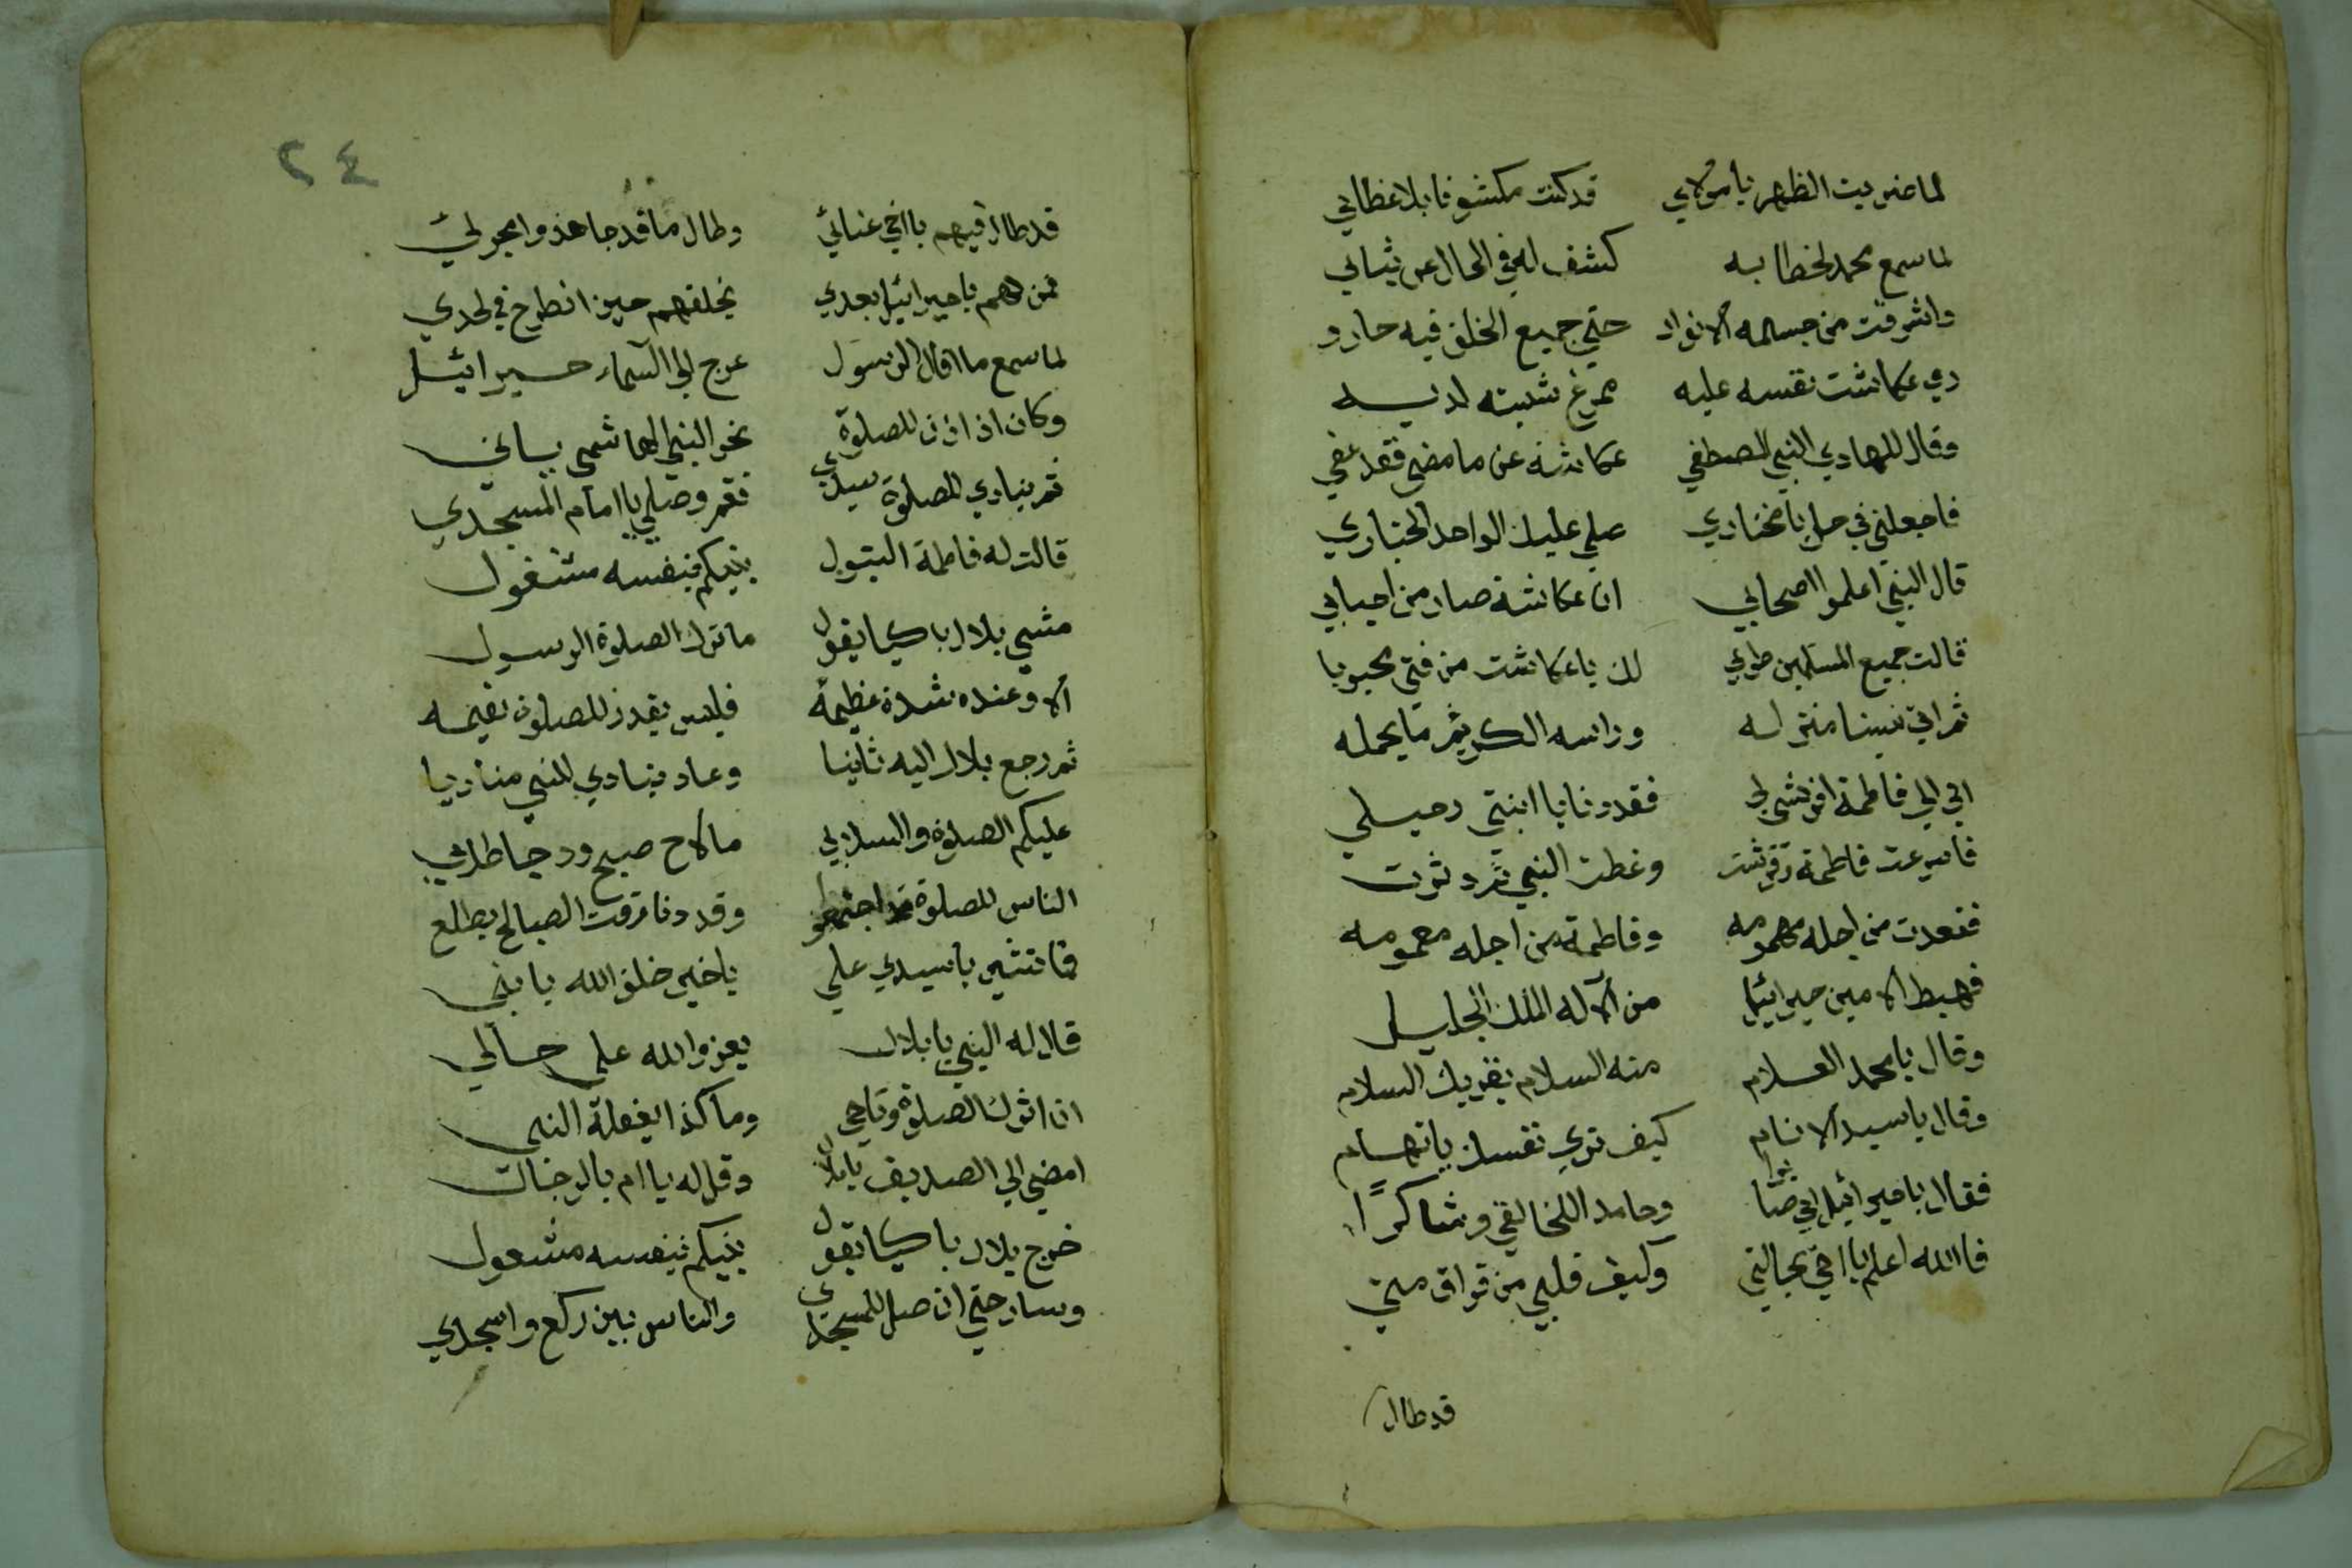 لما ضربت الظهر يا مولاي قد كنت مكشوفا بلا غطائي
لما سمع محمد لخطابه كشف له في الحال عن ثيابي
واشرقت من جسمه الانوار حتي جميع الخلق فيه حارو
رمي عكاشت نفسه عليه مرغ شيبته لديه
وقال للهادي النبي المصطفي عكاشه عن ما مضي فقد عفي
فاجعلني في حل يا مختاري صلي عليك الواحد الجباري
قال النبي اعلموا اصحابي ان عكاشة صار من احبابي
قالت جميع المسلمين طوبي لك يا عكاشت من فتي محبوبا
ثم اتي نبينا منزله وراسه الكريم ما يحمله
اتي الي فاطمة افرشي لي فقد دنا يا ابنتي رحيلي
فاسرعت فاطمة وفرشت وغطت النبي ثم دثرت
فقعدت من اجله مهمومه وفاطمة من اجله مغمومه
فهبط الامين جبرائيل من الاله الملك الجليل
وقال يا محمد السلام منه السلام يقريك السلام
وقال يا سيد الانام كيف تري نفسك يا تهام
فقال يا جبرائيل اني صابرا وحامد اللخالقي وشاكرًا
فا الله اعلم يا اخي بحالتي وكيف قلبي من فراق متي
قد طال
٢٤
قد طال فيهم يا اخي عنائي وطال ما قد جاهدوا
فمن لهم يا جبرائيل بعدي يخلفهم حين انطرح في لحدي
لما سمع ما قال الرسول عرج الي السماء جبرائيل
وكان اذ اذن للصلوة نحو النبي الهاشمي ياتي
ثم ينادي للصلوة سيدي فقم وصلي يا امام المسجدي
قالت له فاطمة البتول نبيكم بنفسه مشغول
مشي بلال باكيا يقول ما ترك الصلوة الرسول
الا وعنده شدة عظيمه فليس يقدر للصلوة يقيمه
ثم رجع بلال اليه ثانيا وعاد ينادي للنبي مناديا
عليكم الصلوة والسلامي ما لاح صبح ودجا ظلامي
الناس للصلوة قد اجتمعو وقد دنا وقت الصباح يطلع
فما تشير يا سيدي علي يا خير خلق الله يا نبي
قال له النبي يا بلال يعز والله علي حالي
ان اترك الصلوة وما كذا يفعله النبي
امضي الي الصديق يا بلال وقل له يا ام بالرجال
خرج بلال باكيا يقول نبيكم بنفسه مشغول
وسار حتي ان صل للمسجدي والناس بين ركع واسجدي